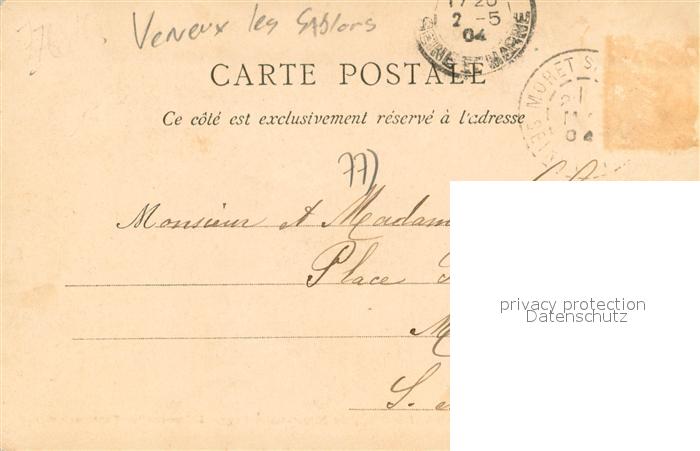 Veneux les Sablons
17 20
2 -5
04
SEINE ET MARNE
CARTE POSTALE
MORET S
04
Ce côté est exclusivement réservé à l'adresse
77)
Monsieur et Madam
Place
M
S.
privacy protection
Datenschutz